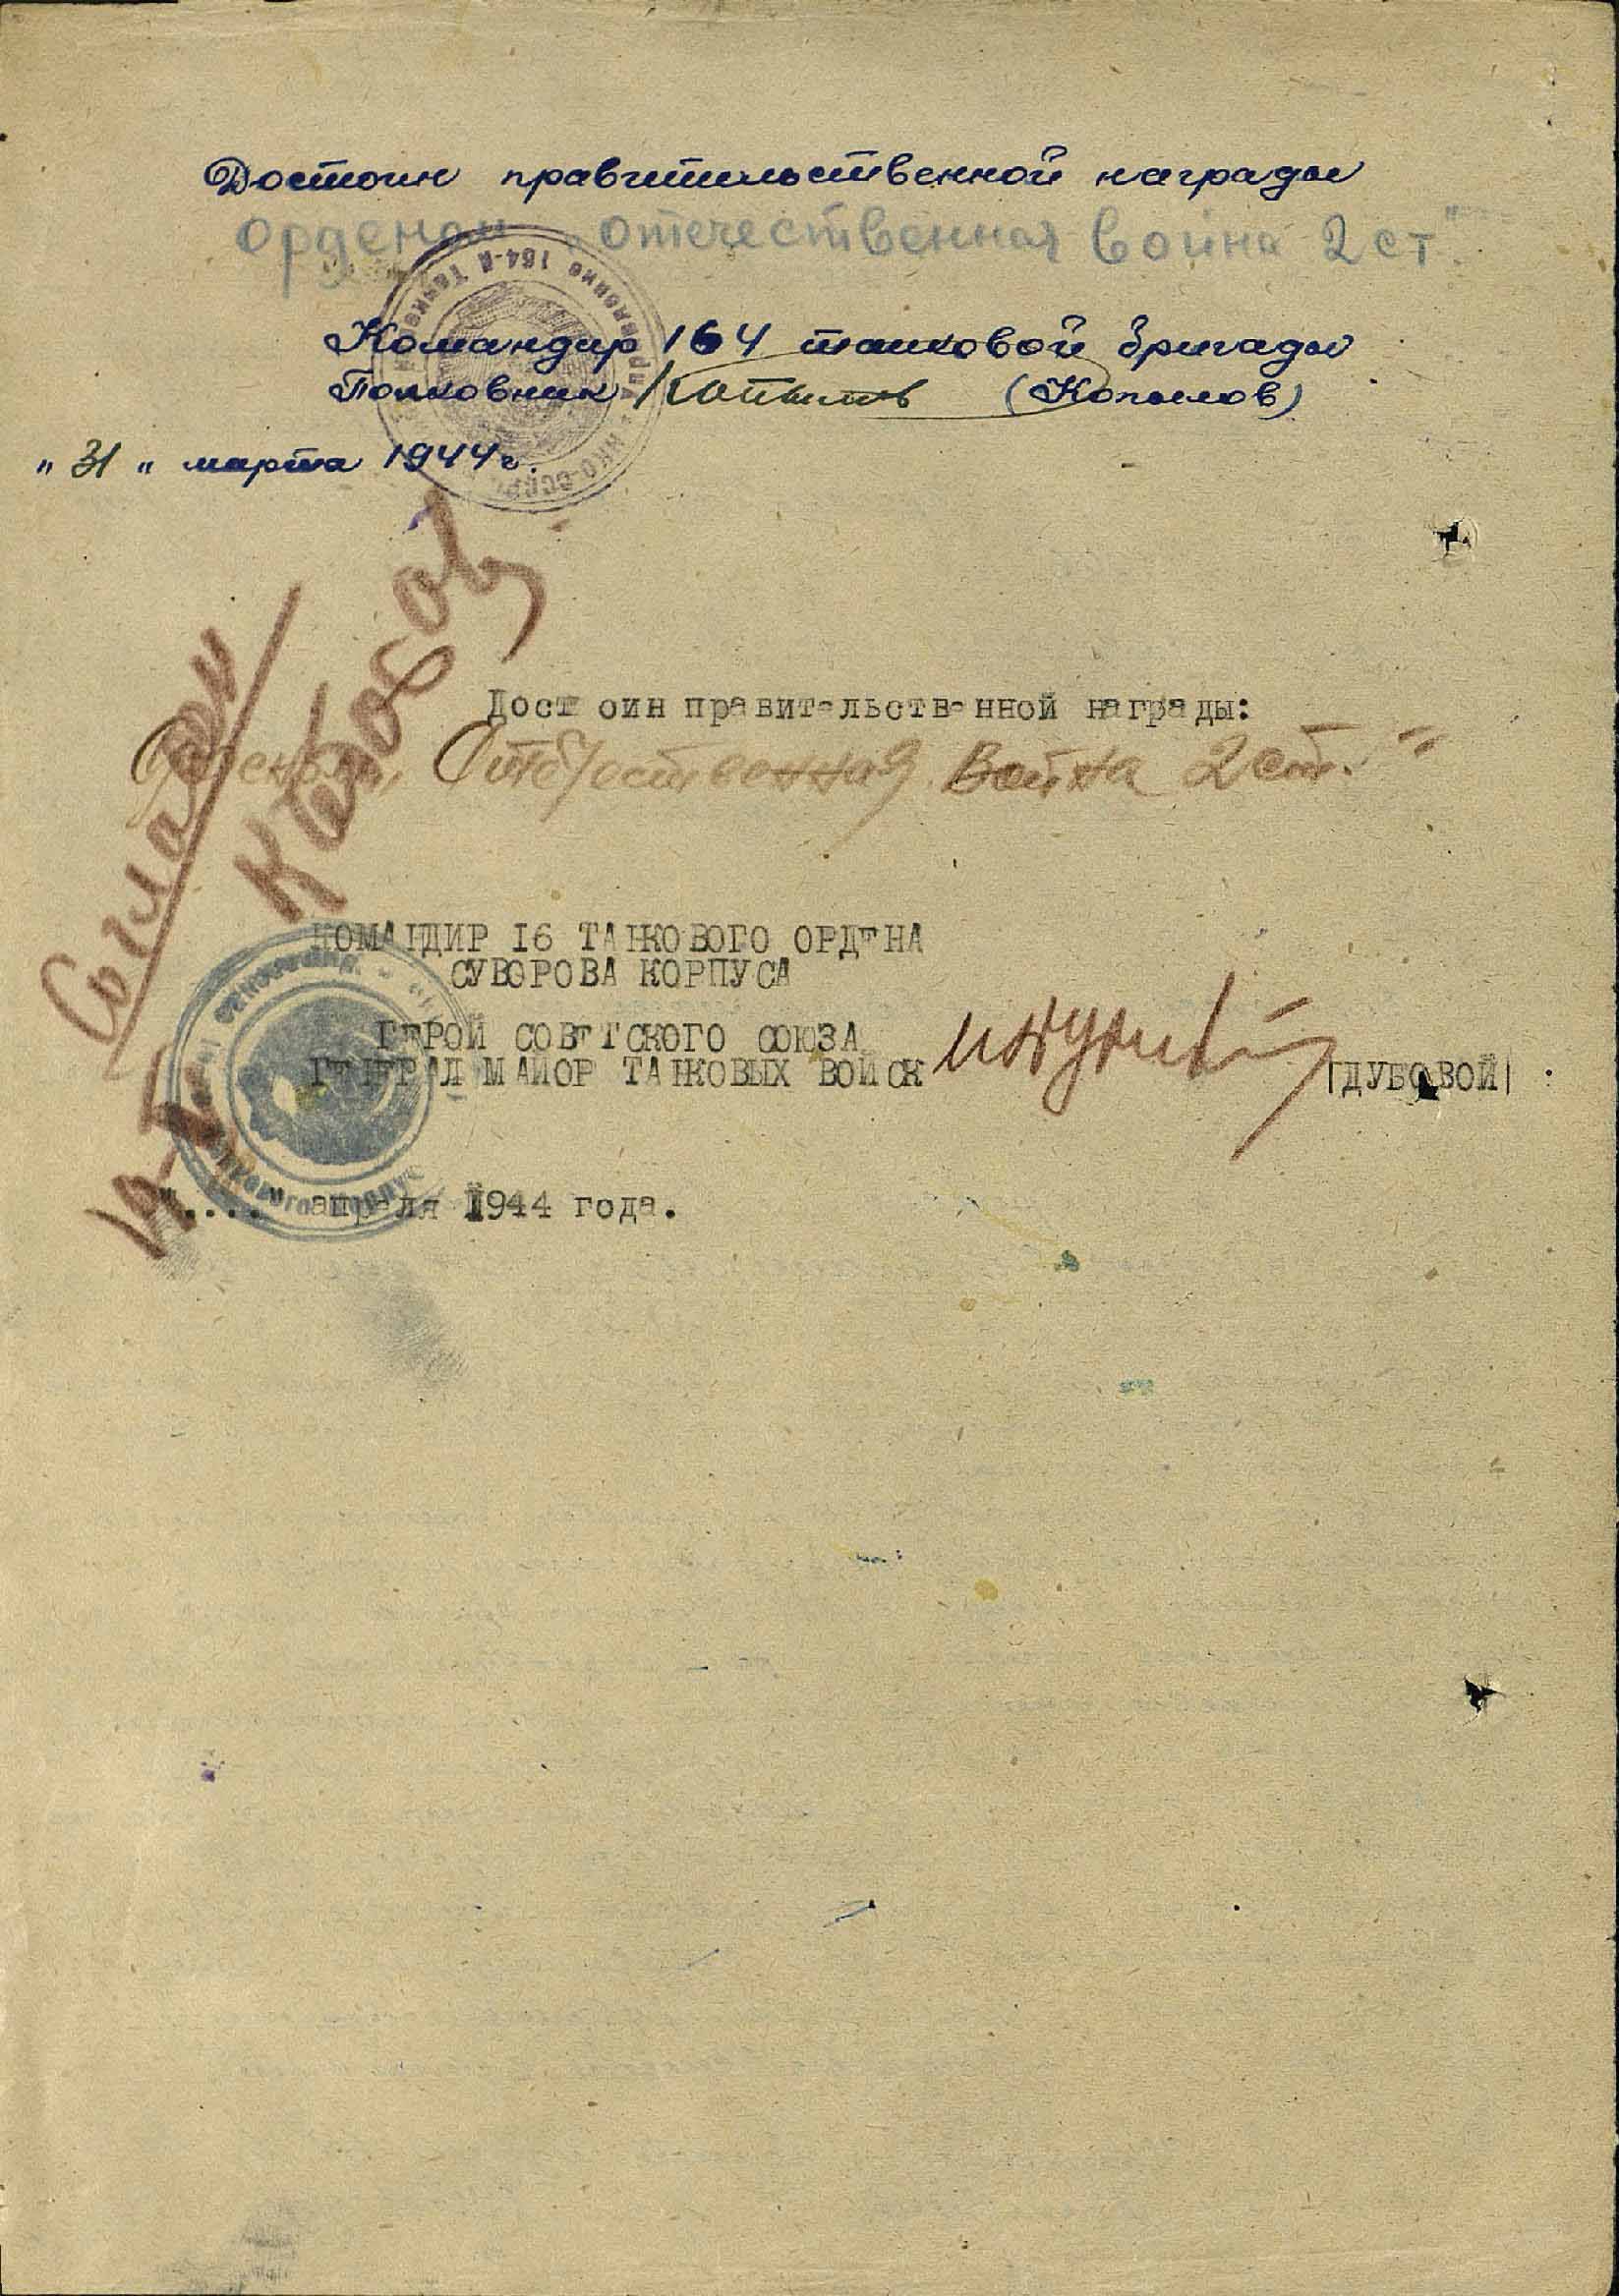 Достоин правительственной награды
орденом „отечественная война 2 ст."
Командир 164 танковой бригады
Полковник Копылов (Копылов)
„31" марта 1944 г.
Согласен
Достоин правительственной награды:
Орденом „Отечественная Война 2 ст."
КОМАНДИР 16 ТАНКОВОГО ОРДЕНА
СУВОРОВА КОРПУСА
ГЕРОЙ СОВЕТСКОГО СОЮЗА
ГЕНЕРАЛ МАЙОР ТАНКОВЫХ ВОЙСК
|ДУБОВОЙ|
".... апреля 1944 года.